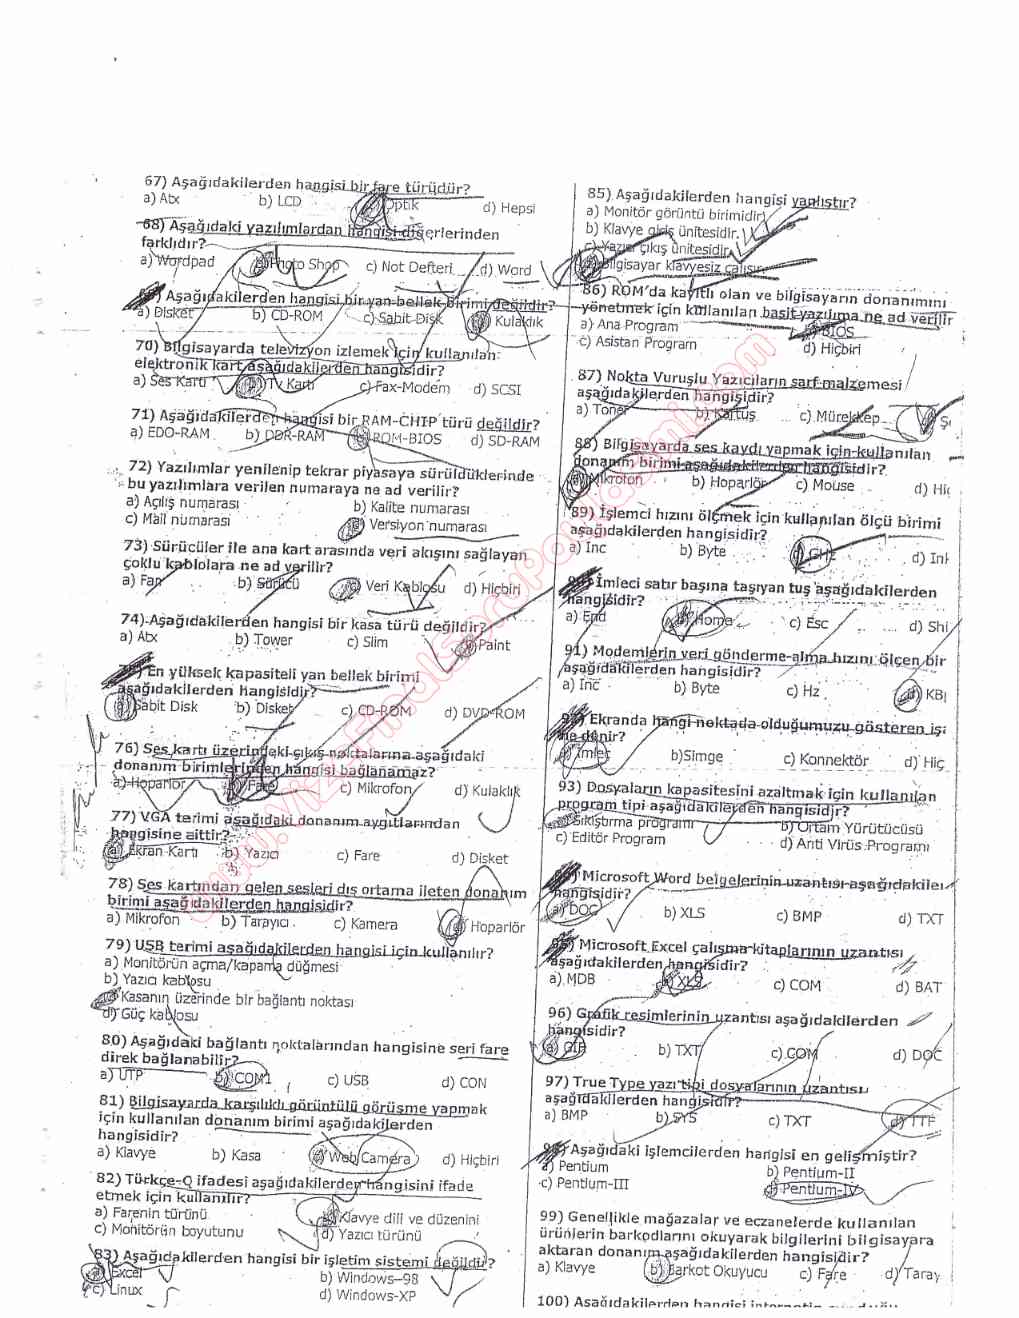 67) Aşağıdakilerden hangisi bir fare türüdür?
a) Atx b) LCD c) Optik d) Hepsi
68) Aşağıdaki yazılımlardan hangisi diğerlerinden
farklıdır?
a) Wordpad b) Photo Shop c) Not Defteri d) Word
69) Aşağıdakilerden hangisi bir yan bellek birimi değildir?
a) Disket b) CD-ROM c) Sabit Disk d) Kulaklık
70) Bilgisayarda televizyon izlemek için kullanılan
elektronik kart aşağıdakilerden hangisidir?
a) Ses Kartı b) Tv Kartı c) Fax-Modem d) SCSI
71) Aşağıdakilerden hangisi bir RAM-CHIP türü değildir?
a) EDO-RAM b) DDR-RAM c) ROM-BIOS d) SD-RAM
72) Yazılımlar yenilenip tekrar piyasaya sürüldüklerinde
bu yazılımlara verilen numaraya ne ad verilir?
a) Açılış numarası b) Kalite numarası
c) Mail numarası d) Versiyon numarası
73) Sürücüler ile ana kart arasında veri akışını sağlayan
çoklu kablolara ne ad verilir?
a) Fan b) Sürücü c) Veri Kablosu d) Hiçbiri
74) Aşağıdakilerden hangisi bir kasa türü değildir?
a) Atx b) Tower c) Slim d) Paint
75) En yüksek kapasiteli yan bellek birimi
aşağıdakilerden hangisidir?
a) Sabit Disk b) Disket c) CD-ROM d) DVD-ROM
76) Ses kartı üzerindeki çıkış noktalarına aşağıdaki
donanım birimlerinden hangisi bağlanamaz?
a) Hoparlör b) Fare c) Mikrofon d) Kulaklık
77) VGA terimi aşağıdaki donanım aygıtlarından
hangisine aittir?
a) Ekran Kartı b) Yazıcı c) Fare d) Disket
78) Ses kartından gelen sesleri dış ortama ileten donanım
birimi aşağıdakilerden hangisidir?
a) Mikrofon b) Tarayıcı c) Kamera d) Hoparlör
79) USB terimi aşağıdakilerden hangisi için kullanılır?
a) Monitörün açma/kapama düğmesi
b) Yazıcı kablosu
c) Kasanın üzerinde bir bağlantı noktası
d) Güç kablosu
80) Aşağıdaki bağlantı noktalarından hangisine seri fare
direk bağlanabilir?
a) UTP b) COM1 c) USB d) CON
81) Bilgisayarda karşılıklı görüntülü görüşme yapmak
için kullanılan donanım birimi aşağıdakilerden
hangisidir?
a) Klavye b) Kasa c) Web Camera d) Hiçbiri
82) Türkçe-Q ifadesi aşağıdakilerden hangisini ifade
etmek için kullanılır?
a) Farenin türünü b) Klavye dili ve düzenini
c) Monitörün boyutunu d) Yazıcı türünü
83) Aşağıdakilerden hangisi bir işletim sistemi değildir?
a) Excel b) Windows-98
c) Linux d) Windows-XP
85) Aşağıdakilerden hangisi yanlıştır?
a) Monitör görüntü birimidir
b) Klavye giriş ünitesidir.
c) Yazıcı çıkış ünitesidir
d) Bilgisayar klavyesiz çalışır
86) ROM'da kayıtlı olan ve bilgisayarın donanımını
yönetmek için kullanılan basit yazılıma ne ad verilir
a) Ana Program b) BIOS
c) Asistan Program d) Hiçbiri
87) Nokta Vuruşlu Yazıcıların sarf malzemesi
aşağıdakilerden hangisidir?
a) Toner b) Kartuş c) Mürekkep Şe
88) Bilgisayarda ses kaydı yapmak için kullanılan
donanım birimi aşağıdakilerden hangisidir?
a) Mikrofon b) Hoparlör c) Mouse d) Hiç
89) İşlemci hızını ölçmek için kullanılan ölçü birimi
aşağıdakilerden hangisidir?
a) Inc b) Byte c) GHz d) Inl
90) İmleci satır başına taşıyan tuş aşağıdakilerden
hangisidir?
a) End b) Home c) Esc d) Shi
91) Modemlerin veri gönderme-alma hızını ölçen bir
aşağıdakilerden hangisidir?
a) Inc b) Byte c) Hz d) KB
92) Ekranda hangi noktada olduğumuzu gösteren işa
ne denir?
a) İmleç b)Simge c) Konnektör d) Hiç
93) Dosyaların kapasitesini azaltmak için kullanılan
program tipi aşağıdakilerden hangisidir?
a) Sıkıştırma programı b) Ortam Yürütücüsü
c) Editör Program d) Anti Virüs Programı
94) Microsoft Word belgelerinin uzantısı aşağıdakiler
hangisidir?
a) DOC b) XLS c) BMP d) TXT
95) Microsoft Excel çalışma kitaplarının uzantısı
aşağıdakilerden hangisidir?
a) MDB b) XLS c) COM d) BAT
96) Grafik resimlerinin uzantısı aşağıdakilerden
hangisidir?
a) GIF b) TXT c) COM d) DOC
97) True Type yazı tipi dosyalarının uzantısı
aşağıdakilerden hangisidir?
a) BMP b) SYS c) TXT d) TTF
98) Aşağıdaki işlemcilerden hangisi en gelişmiştir?
a) Pentium b) Pentium-II
c) Pentium-III d) Pentium-IV
99) Genellikle mağazalar ve eczanelerde kullanılan
ürünlerin barkodlarını okuyarak bilgilerini bilgisayara
aktaran donanım aşağıdakilerden hangisidir?
a) Klavye b) Barkot Okuyucu c) Fare d) Taray
100) Aşağıdakilerden hangisi